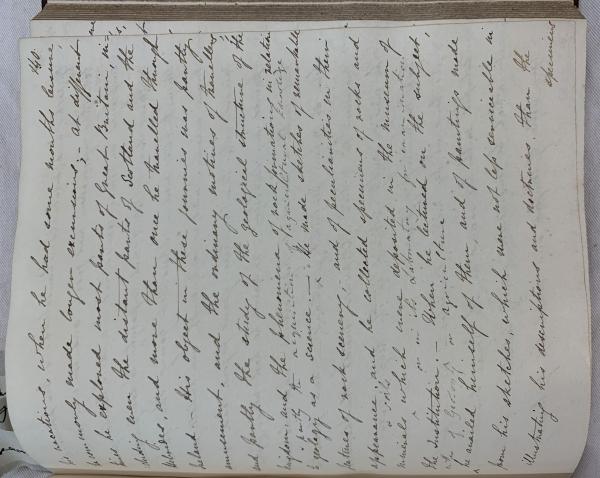 401
vacations, when he had some months leisure,
he commonly made longer excursions; - at different
times he explored most parts of Great Britain in-
cluding even the distant parts of Scotland and the
Hebrides and more than once he travelled through
Ireland. - His object in these journies was partly
amusement, and the ordinary motives of travellers
and partly the study of the geological structure of the
kingdom, and the phenomena of rock formations in relation
& partly the acquisition of agricultural knowledge
to geology as a science. - He made sketches of remarkable
features of rock scenery, and of peculiarities in their
appearance; and he collected specimens of rocks and
& soils
minerals which were deposited in the museum of
or in its Laboratory for examination
the Institution. - When he lectured on the subject,
of Geology or agriculture
he availed himself of them and of paintings made
from his sketches, which were not less serviceable in
illustrating his descriptions and doctrines than the
specimens